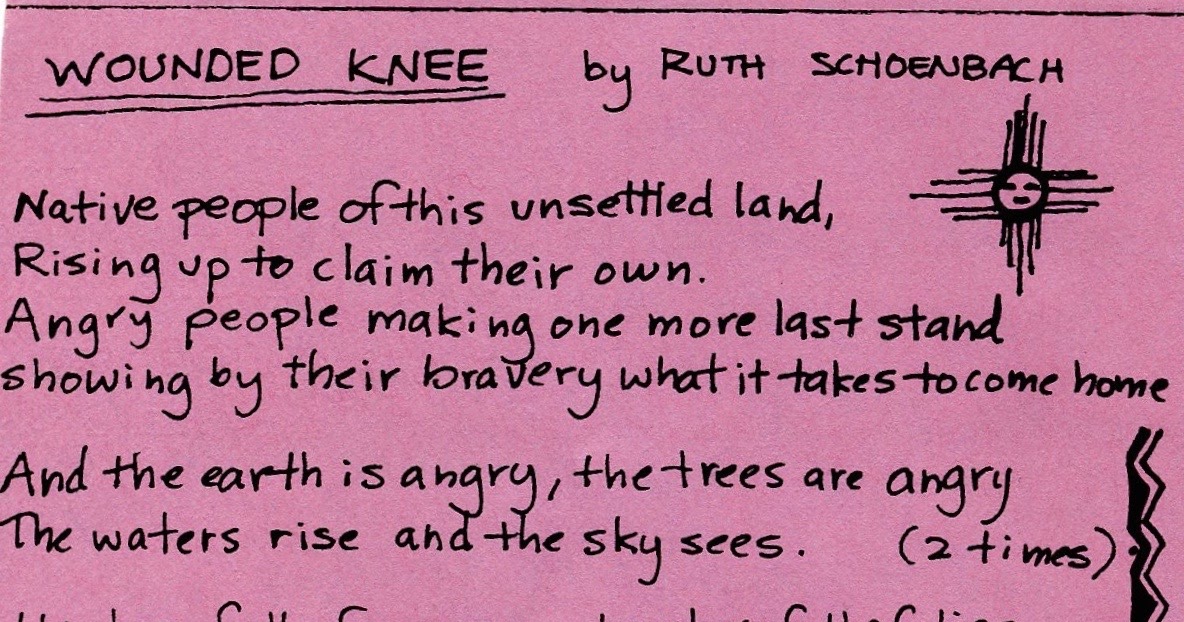 WOUNDED KNEE by RUTH SCHOENBACH
Native people of this unsettled land,
Rising up to claim their own.
Angry people making one more last stand
showing by their bravery what it takes to come home
And the earth is angry, the trees are angry
The waters rise and the sky sees. (2 times)